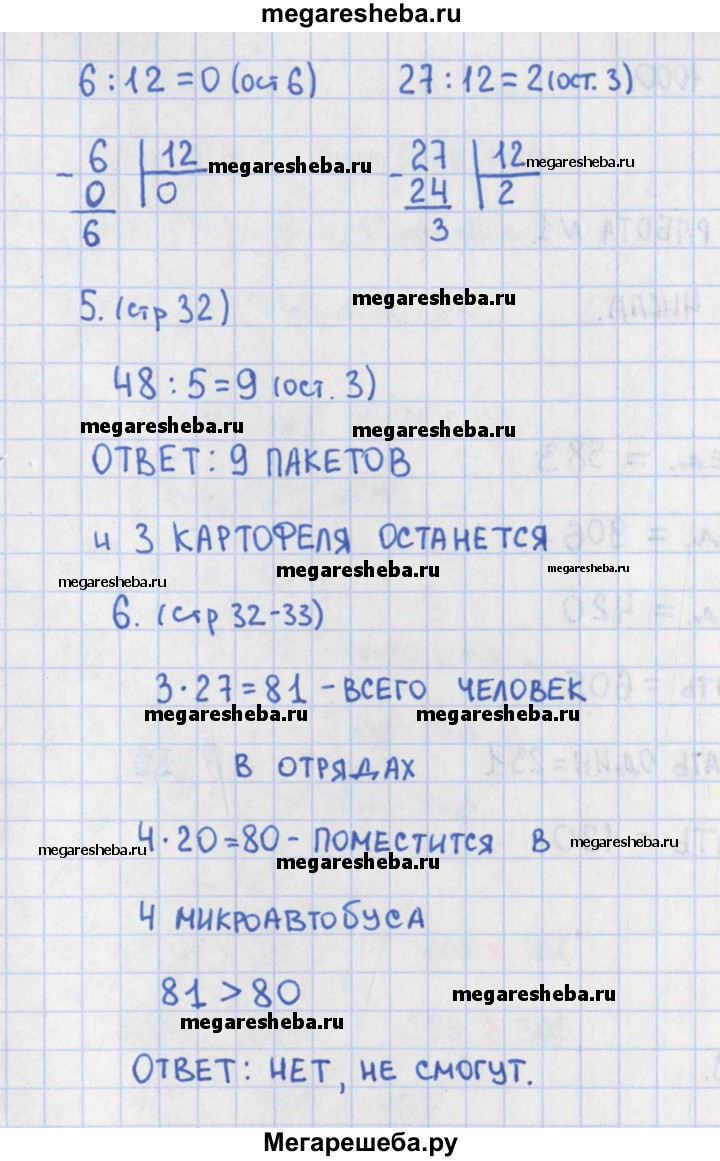 megaresheba.ru
6 : 12 = 0 (ост 6) 27 : 12 = 2 (ост. 3)
- 6 | 12 megaresheba.ru - 27 | 12 megaresheba.ru
0 | 0 24 | 2
6 3
5. (стр 32) megaresheba.ru
48 : 5 = 9 (ост. 3)
megaresheba.ru megaresheba.ru
ОТВЕТ: 9 ПАКЕТОВ
и 3 КАРТОФЕЛЯ ОСТАНЕТСЯ
megaresheba.ru megaresheba.ru megaresheba.ru
6. (стр 32-33)
3 · 27 = 81 - ВСЕГО ЧЕЛОВЕК
megaresheba.ru megaresheba.ru
В ОТРЯДАХ
4 · 20 = 80 - ПОМЕСТИТСЯ В
megaresheba.ru megaresheba.ru megaresheba.ru
4 МИКРОАВТОБУСА
81 > 80 megaresheba.ru
megaresheba.ru
ОТВЕТ: НЕТ, НЕ СМОГУТ.
Мегарешеба.ру